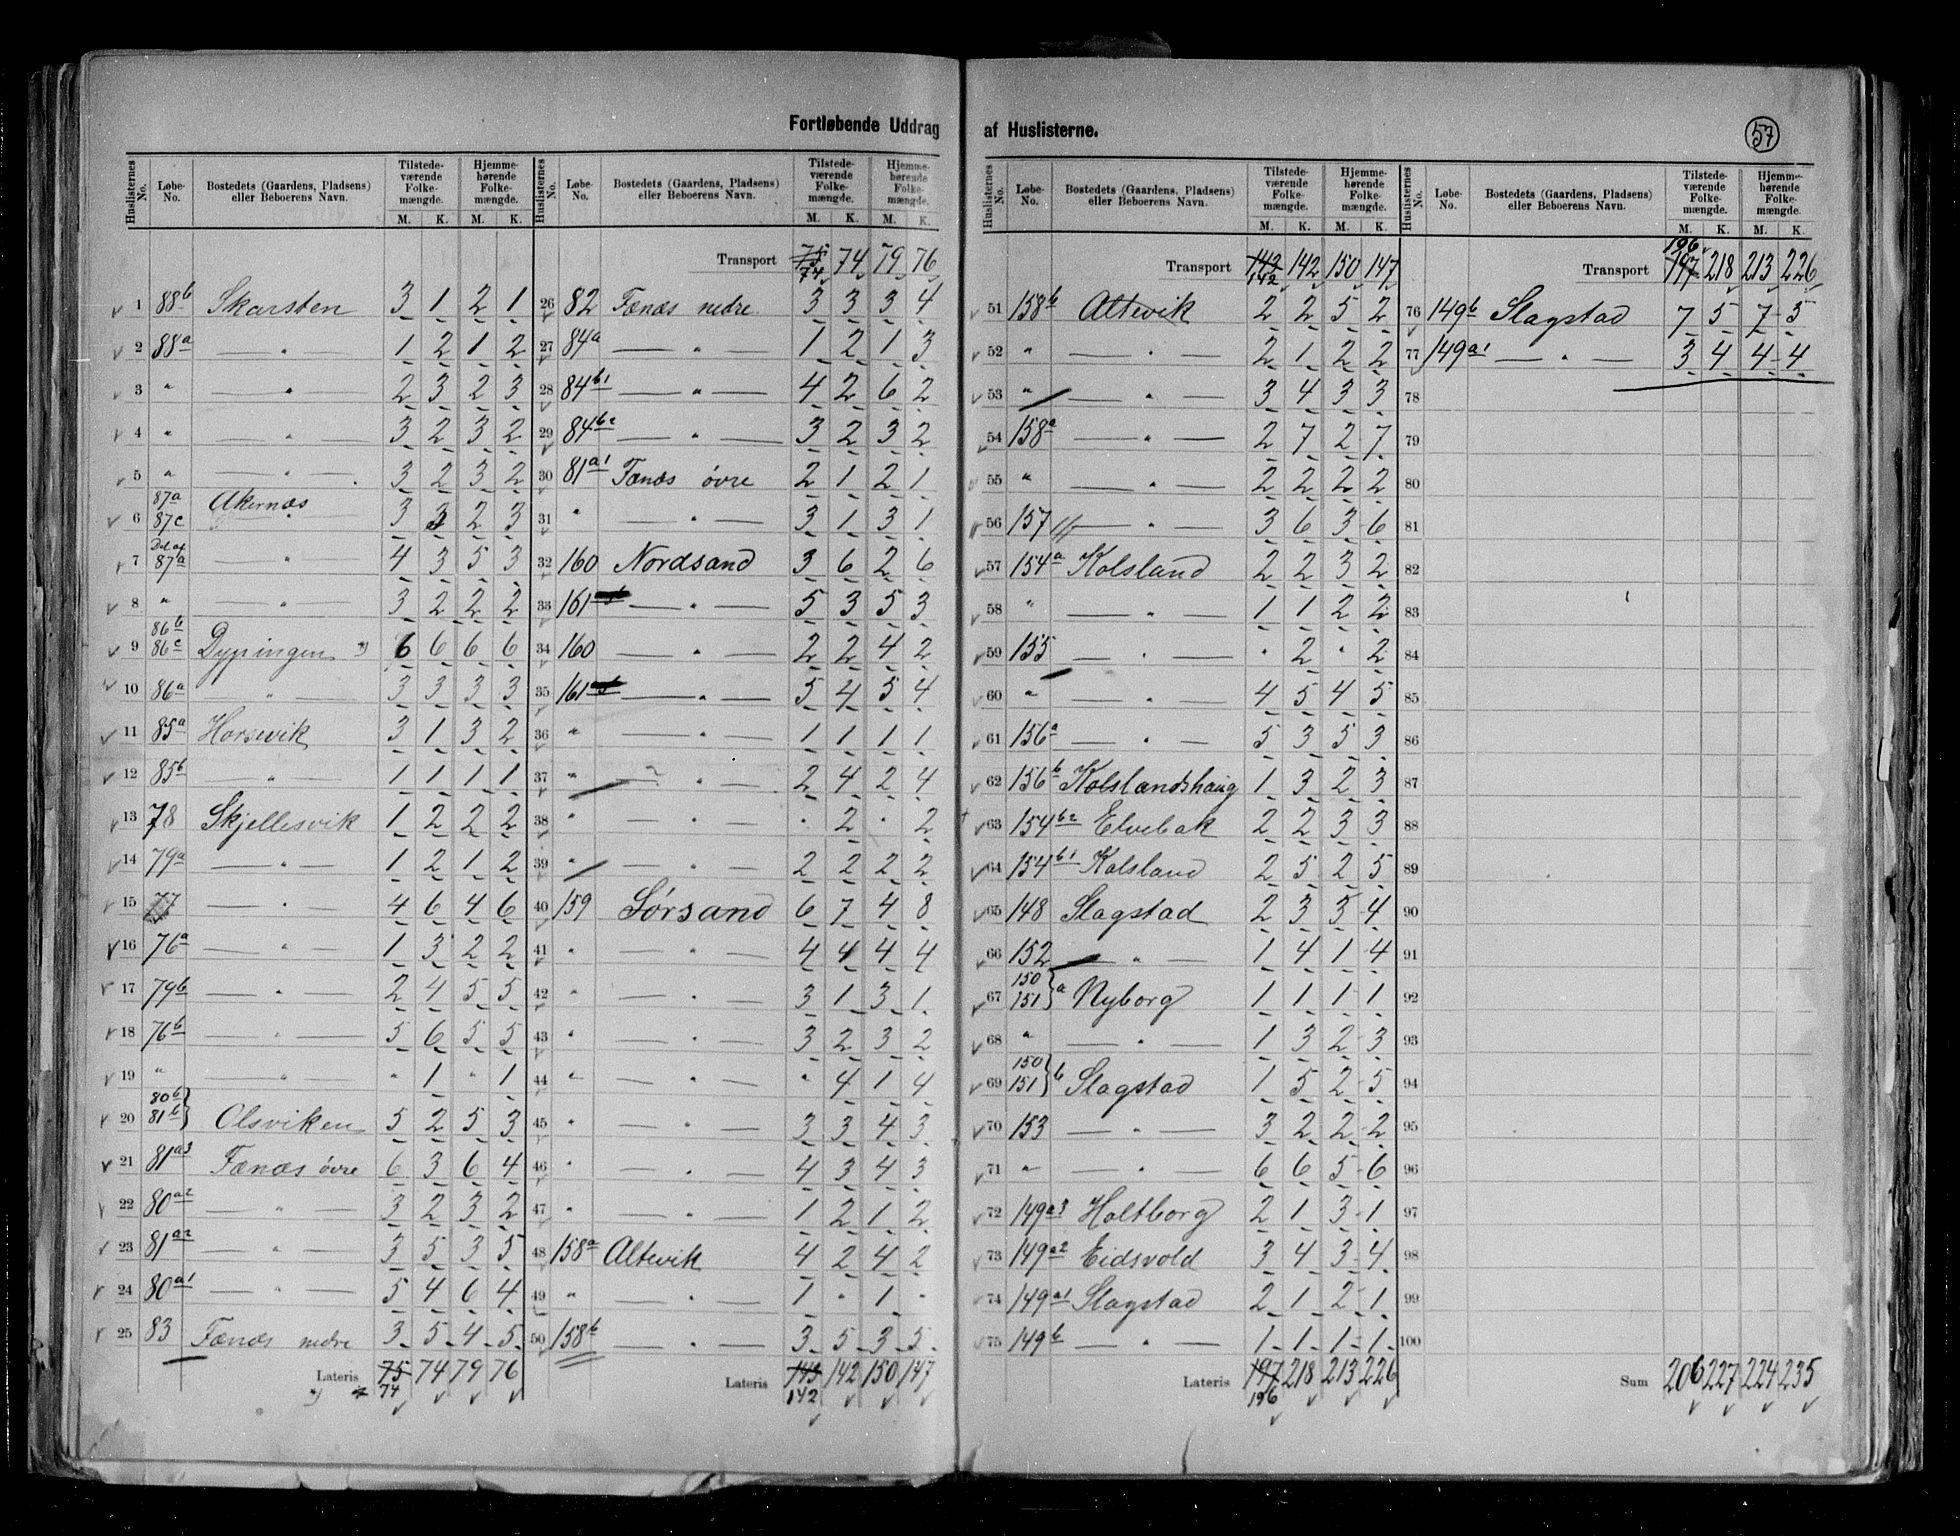 Fortløbende Uddrag af Huslisterne.
57
Huslisternes No. Løbe-No. Bostedets (Gaardens, Pladsens) eller Beboerens Navn. Tilstedeværende Folkemængde. M. K. Hjemmehørende Folkemængde. M. K.
1 88b Skarsten 3 1 2 1
2 88a — " — 1 2 1 2
3 " " 2 3 2 3
4 " — " — 3 2 3 2
5 " — " — 3 2 3 2
6 87a 87c Akernæs " 3 3 2 3
7 Del af 87a — " — 4 3 5 3
8 " — " — 3 2 2 2
9 86b 86c Dypingen *) 6 6 6 6
10 86a — " — 3 3 3 3
11 85a Horsevik 3 1 3 2
12 85b — " — 1 1 1 1
13 78 Skjellesvik 1 2 2 2
14 79a — " — 1 2 1 2
15 77 — " — 4 6 4 6
16 76a — " — 1 3 2 2
17 79b — " — 2 4 5 5
18 76b — " — 5 6 5 5
19 " — " — " 1 " 1
20 80b 81b } Olsviken 5 2 5 3
21 81a3 Fænæs øvre 6 3 6 4
22 80a2 — " — 3 2 3 2
23 81a2 — " — 3 5 3 5
24 80a1 — " — 5 4 6 4
25 83 Fænæs nedre 3 5 4 5
Lateris 75 74 79 76
*) 74
Huslisternes No. Løbe-No. Bostedets (Gaardens, Pladsens) eller Beboerens Navn. Tilstedeværende Folkemængde. M. K. Hjemmehørende Folkemængde. M. K.
Transport 75 74 74 79 76
26 82 Fænæs nedre 3 3 3 4
27 84a — " — 1 2 1 3
28 84b1 — " — 4 2 6 2
29 84b2 — " — 3 2 3 2
30 81a1 Fænæs øvre 2 1 2 1
31 " — " — 3 1 3 1
32 160 Nordsand 3 6 2 6
33 161 — " — 5 3 5 3
34 160 — " — 2 2 4 2
35 161 — " — 5 4 5 4
36 " — " — 1 1 1 1
37 " — " — 2 4 2 4
38 " — " — " 2 " 2
39 " — " — 2 2 2 2
40 159 Sørsand 6 7 4 8
41 " — " — 4 4 4 4
42 " — " — 3 1 3 1
43 " — " — 3 2 3 2
44 " — " — " 4 1 4
45 " — " — 3 3 4 3
46 " — " — 4 3 4 3
47 " — " — 1 2 1 2
48 158a Altevik 4 2 4 2
49 " — " — 1 " 1 "
50 158b — " — 3 5 3 5
Lateris 143 142 150 147
142
Huslisternes No. Løbe-No. Bostedets (Gaardens, Pladsens) eller Beboerens Navn. Tilstedeværende Folkemængde. M. K. Hjemmehørende Folkemængde. M. K.
Transport 143 142 142 150 147
51 158b Altevik 2 2 5 2
52 " — " — 2 1 2 2
53 " — " — 3 4 3 3
54 158a — " — 2 7 2 7
55 " — " — 2 2 2 2
56 157 — " — 3 6 3 6
57 154a Kolsland 2 2 3 2
58 " — " — 1 1 2 2
59 155 — " — " 2 " 2
60 " — " — 4 5 4 5
61 156a — " — 5 3 5 3
62 156b Kolslandshaug 1 3 2 3
63 154b2 Elvebak 2 2 3 3
64 154b1 Kolsland 2 5 2 5
65 148 Slagstad 2 3 3 4
66 152 — " — 1 4 1 4
67 150 151 } a Nyborg 1 1 1 1
68 " — " — 1 3 2 3
69 150 151 } b Slagstad 1 5 2 5
70 153 — " — 3 2 2 2
71 " — " — 6 6 5 6
72 149a3 Holtborg 2 1 3 1
73 149a2 Eidsvold 3 4 3 4
74 149a1 Slagstad 2 1 2 1
75 149b — " — 1 1 1 1
Lateris 197 218 213 226
196
Huslisternes No. Løbe-No. Bostedets (Gaardens, Pladsens) eller Beboerens Navn. Tilstedeværende Folkemængde. M. K. Hjemmehørende Folkemængde. M. K.
196
Transport 197 218 213 226
76 149b Slagstad 7 5 7 5
77 149a1 — " — 3 4 4 4
78
79
80
81
82
83
84
85
86
87
88
89
90
91
92
93
94
95
96
97
98
99
100
Sum 206 227 224 235